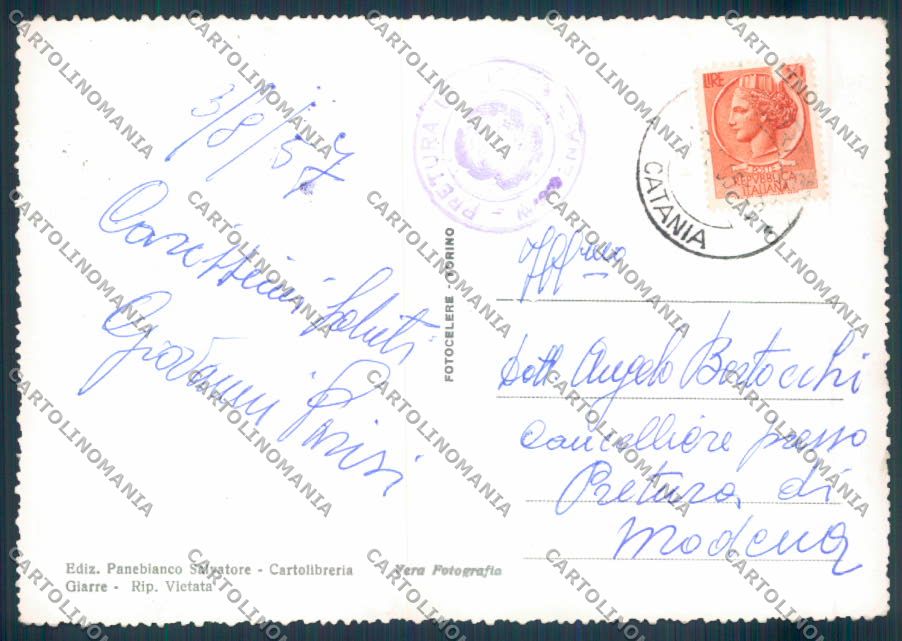 3/8/57
Carissimi Saluti
Giovanni Parisi
Ediz. Panebianco Salvatore - Cartolibreria
Giarre - Rip. Vietata
Vera Fotografia
FOTOCELERE - TORINO
PRETURA
LIRE
POSTE
REPVBBLICA
ITALIANA
CATANIA
Ill/mo
Dott. Angelo Bortocchi
Cancelliere presso
Pretura di
Modena
CARTOLINOMANIA